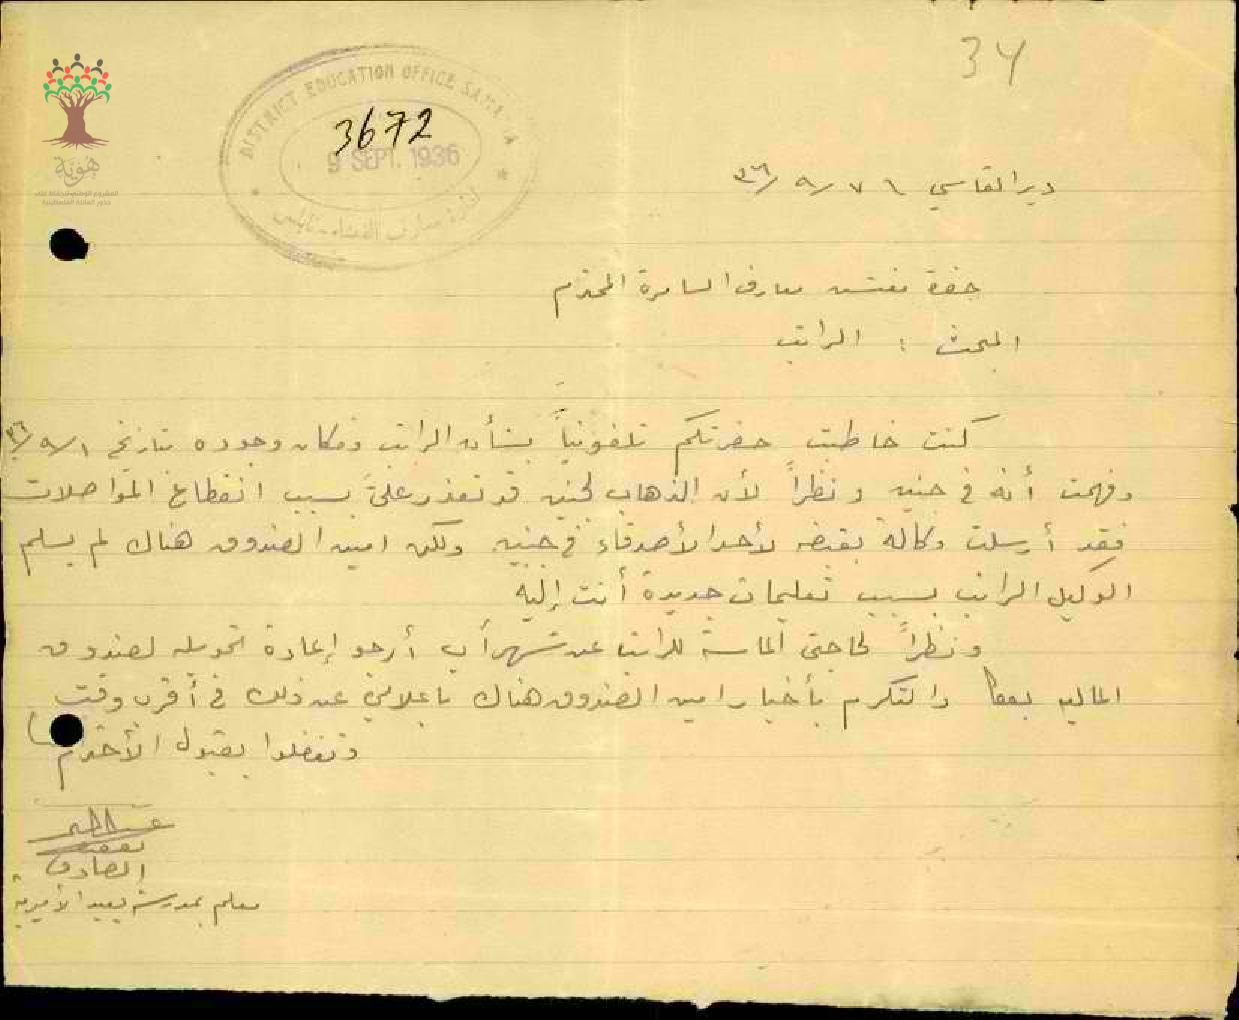 34
DISTRICT EDUCATION OFFICE SAMARIA
3672
9 SEPT. 1936
هوية
دير القاسي ٧ / ٩ / ٣٦
حضرة مفتش معارف السامرة المحترم
المبحث : الراتب
كنت خاطبت حضرتكم تلفونياً بشأن الراتب ومكان وجوده بتاريخ ١ / ٩ / ٣٦
وفهمت أنه في جنين ونظراً لأن الذهاب لجنين قد تعذر علي بسبب انقطاع المواصلات
فقد أرسلت وكالة بقبضه لأحد الأصدقاء في جنين ولكن امين الصندوق هناك لم يسلم
الوكيل الراتب بسبب تعليمات جديدة أتت إليه
ونظراً لحاجتي الماسة للراتب عن شهر آب أرجو إعادة تحويله لصندوق
المالية بعكا والتكرم بأخبار امين الصندوق هناك باعلامي عن ذلك في أقرب وقت
وتفضلوا بقبول الأحترام
الصادق
معلم بمدرسة يعبد الأميرية